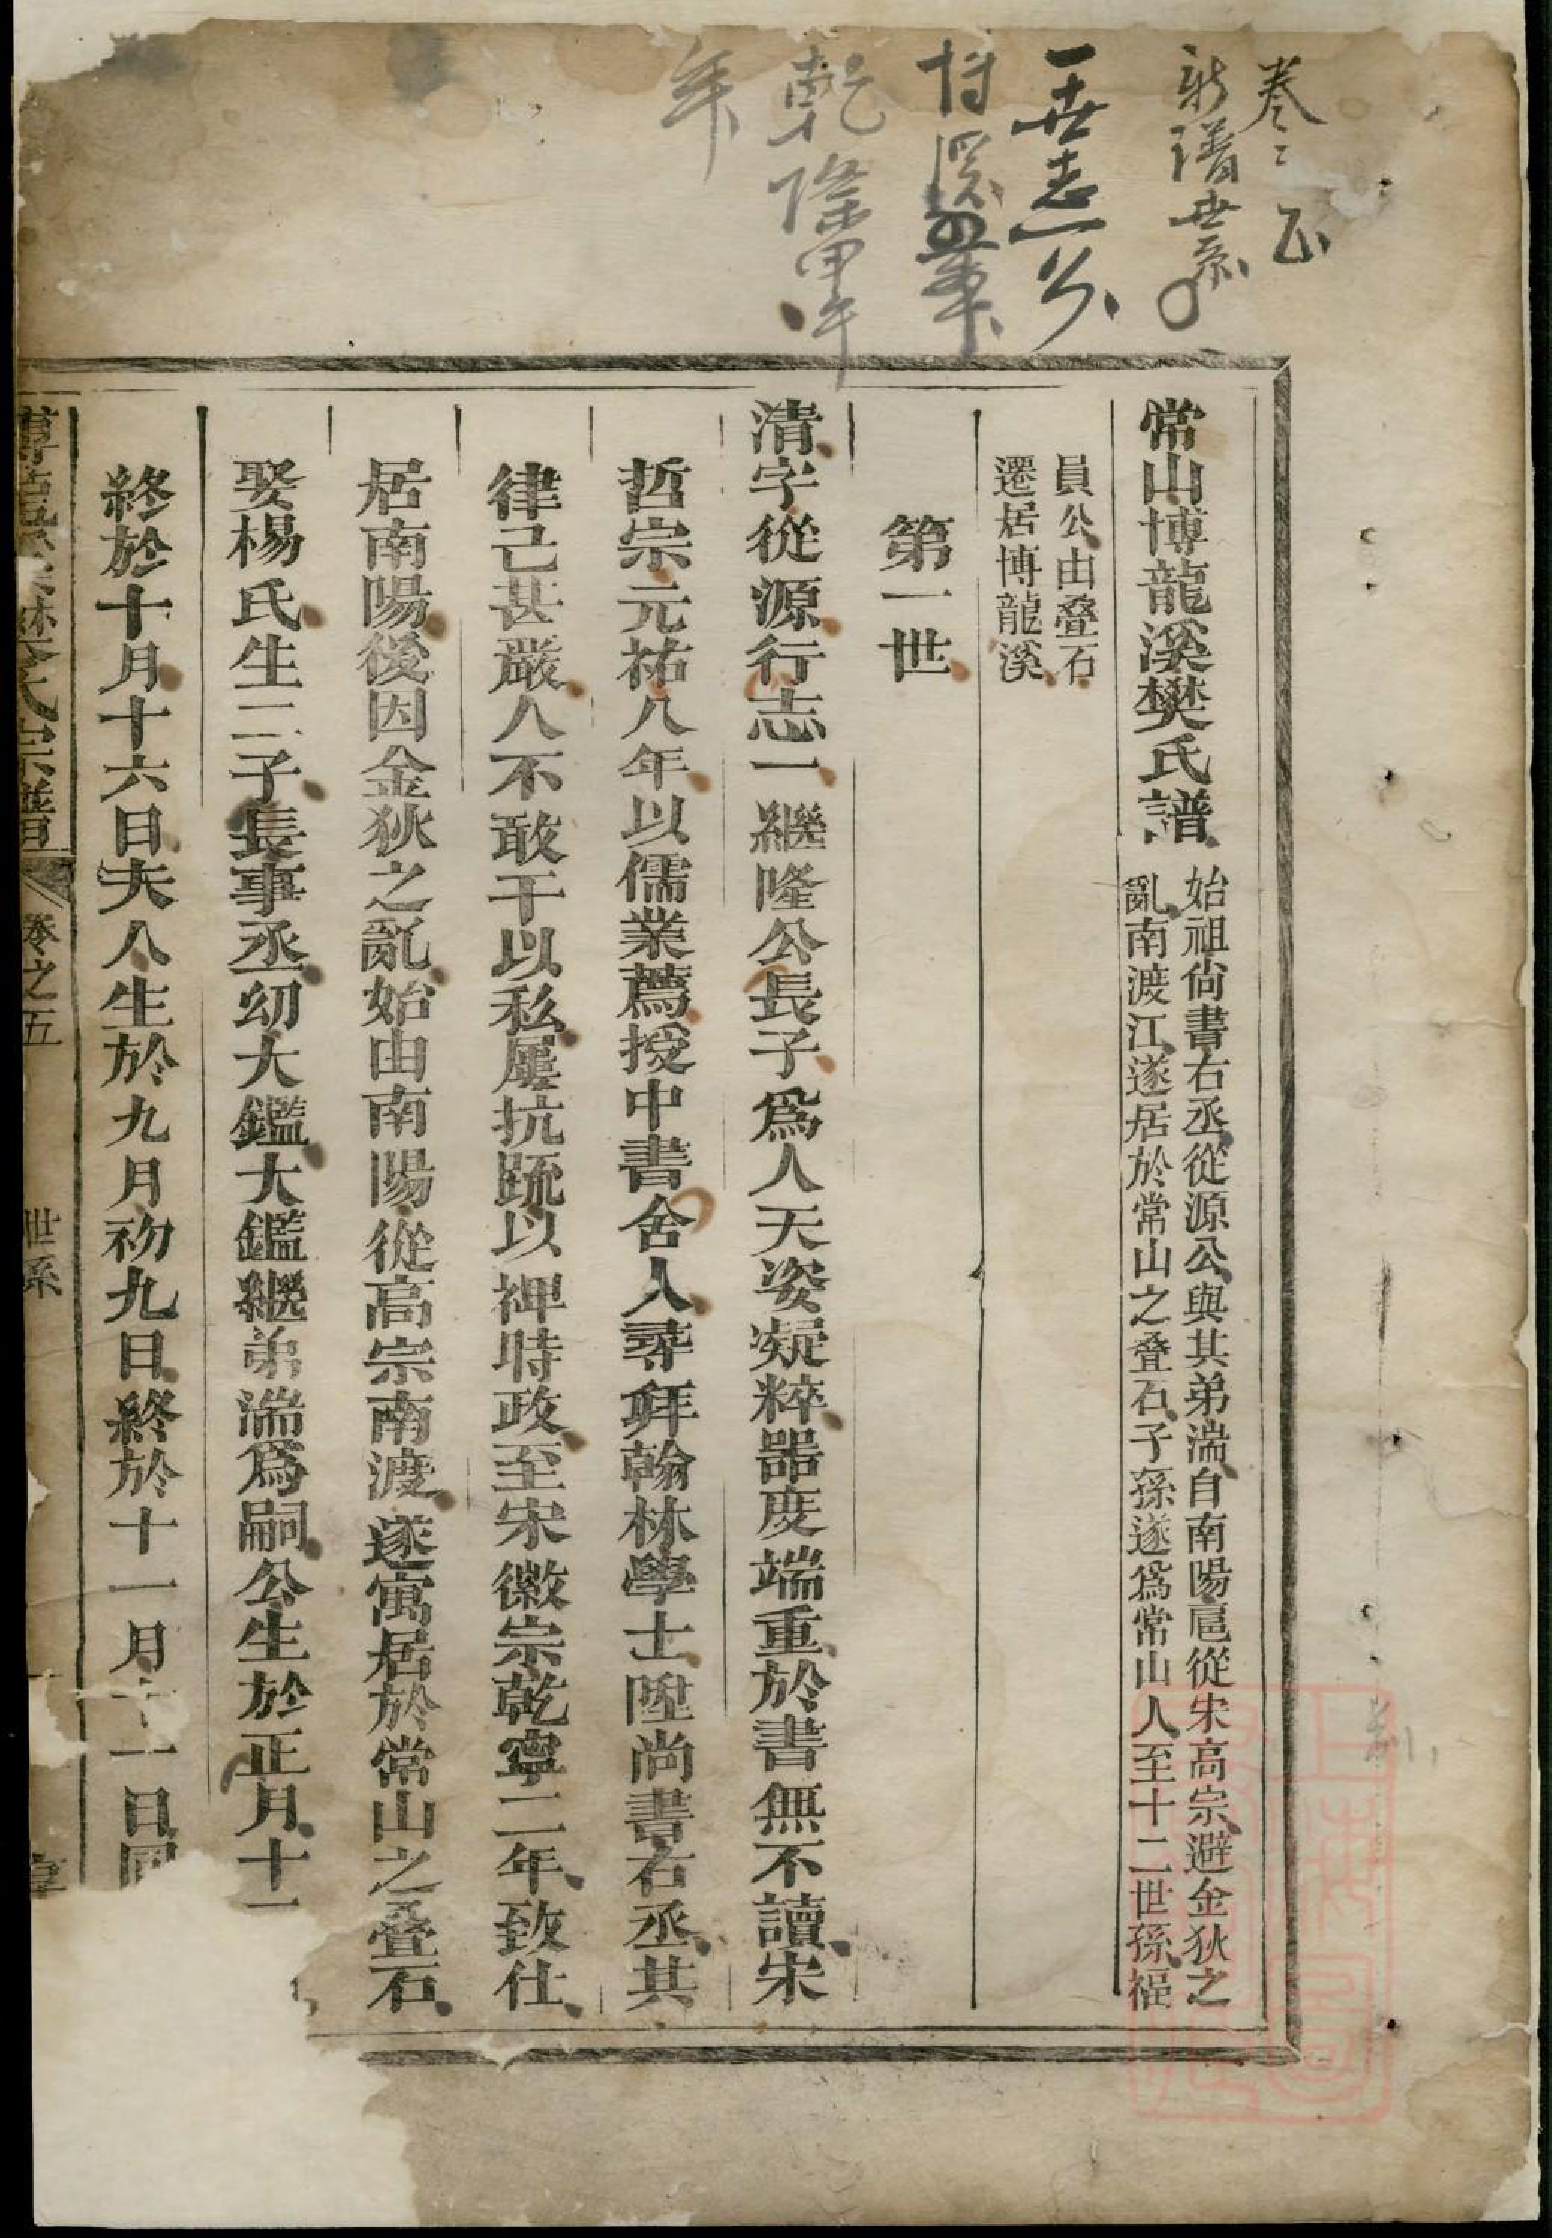 卷二 正
新譜世系
一世志一公
乾隆甲午
年
常山博龍溪樊氏譜
始祖尙書右丞從源公與其弟湍自南陽扈從宋高宗避金狄之
亂南渡江遂居於常山之叠石子孫遂爲常山人至十二世孫福
員公由叠石
遷居博龍溪
第一世
清字從源行志一繼隆公長子爲人天姿凝粹器度端重於書無不讀宋
哲宗元祐八年以儒業薦授中書舍人尋拜翰林學士陞尚書右丞其
律己甚嚴人不敢干以私屢抗疏以裨時政至宋徽宗乾寧二年致仕
居南陽後因金狄之亂始由南陽從高宗南渡遂寓居於常山之叠石
娶楊氏生二子長事丞幼大鑑大鑑繼弟湍爲嗣公生於正月十一
終於十月十六日夫人生於九月初九日終於十一月十一日
氏宗譜 卷之五 世系